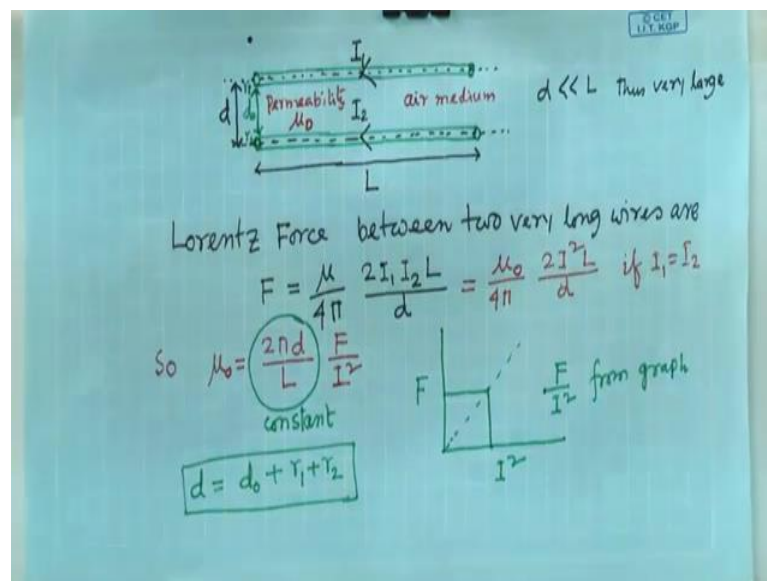 © CET
I.I.T. KGP
I₁
d
d₀
Permeability
μ₀
I₂
air medium
d << L Thus very large
L
Lorentz Force between two very long wires are
F = μ/4π 2I₁I₂L/d = μ₀/4π 2I²L/d if I₁=I₂
So μ₀= (2πd/L) F/I²
constant
F
I²
F/I² from graph
d = d₀ + r₁+r₂